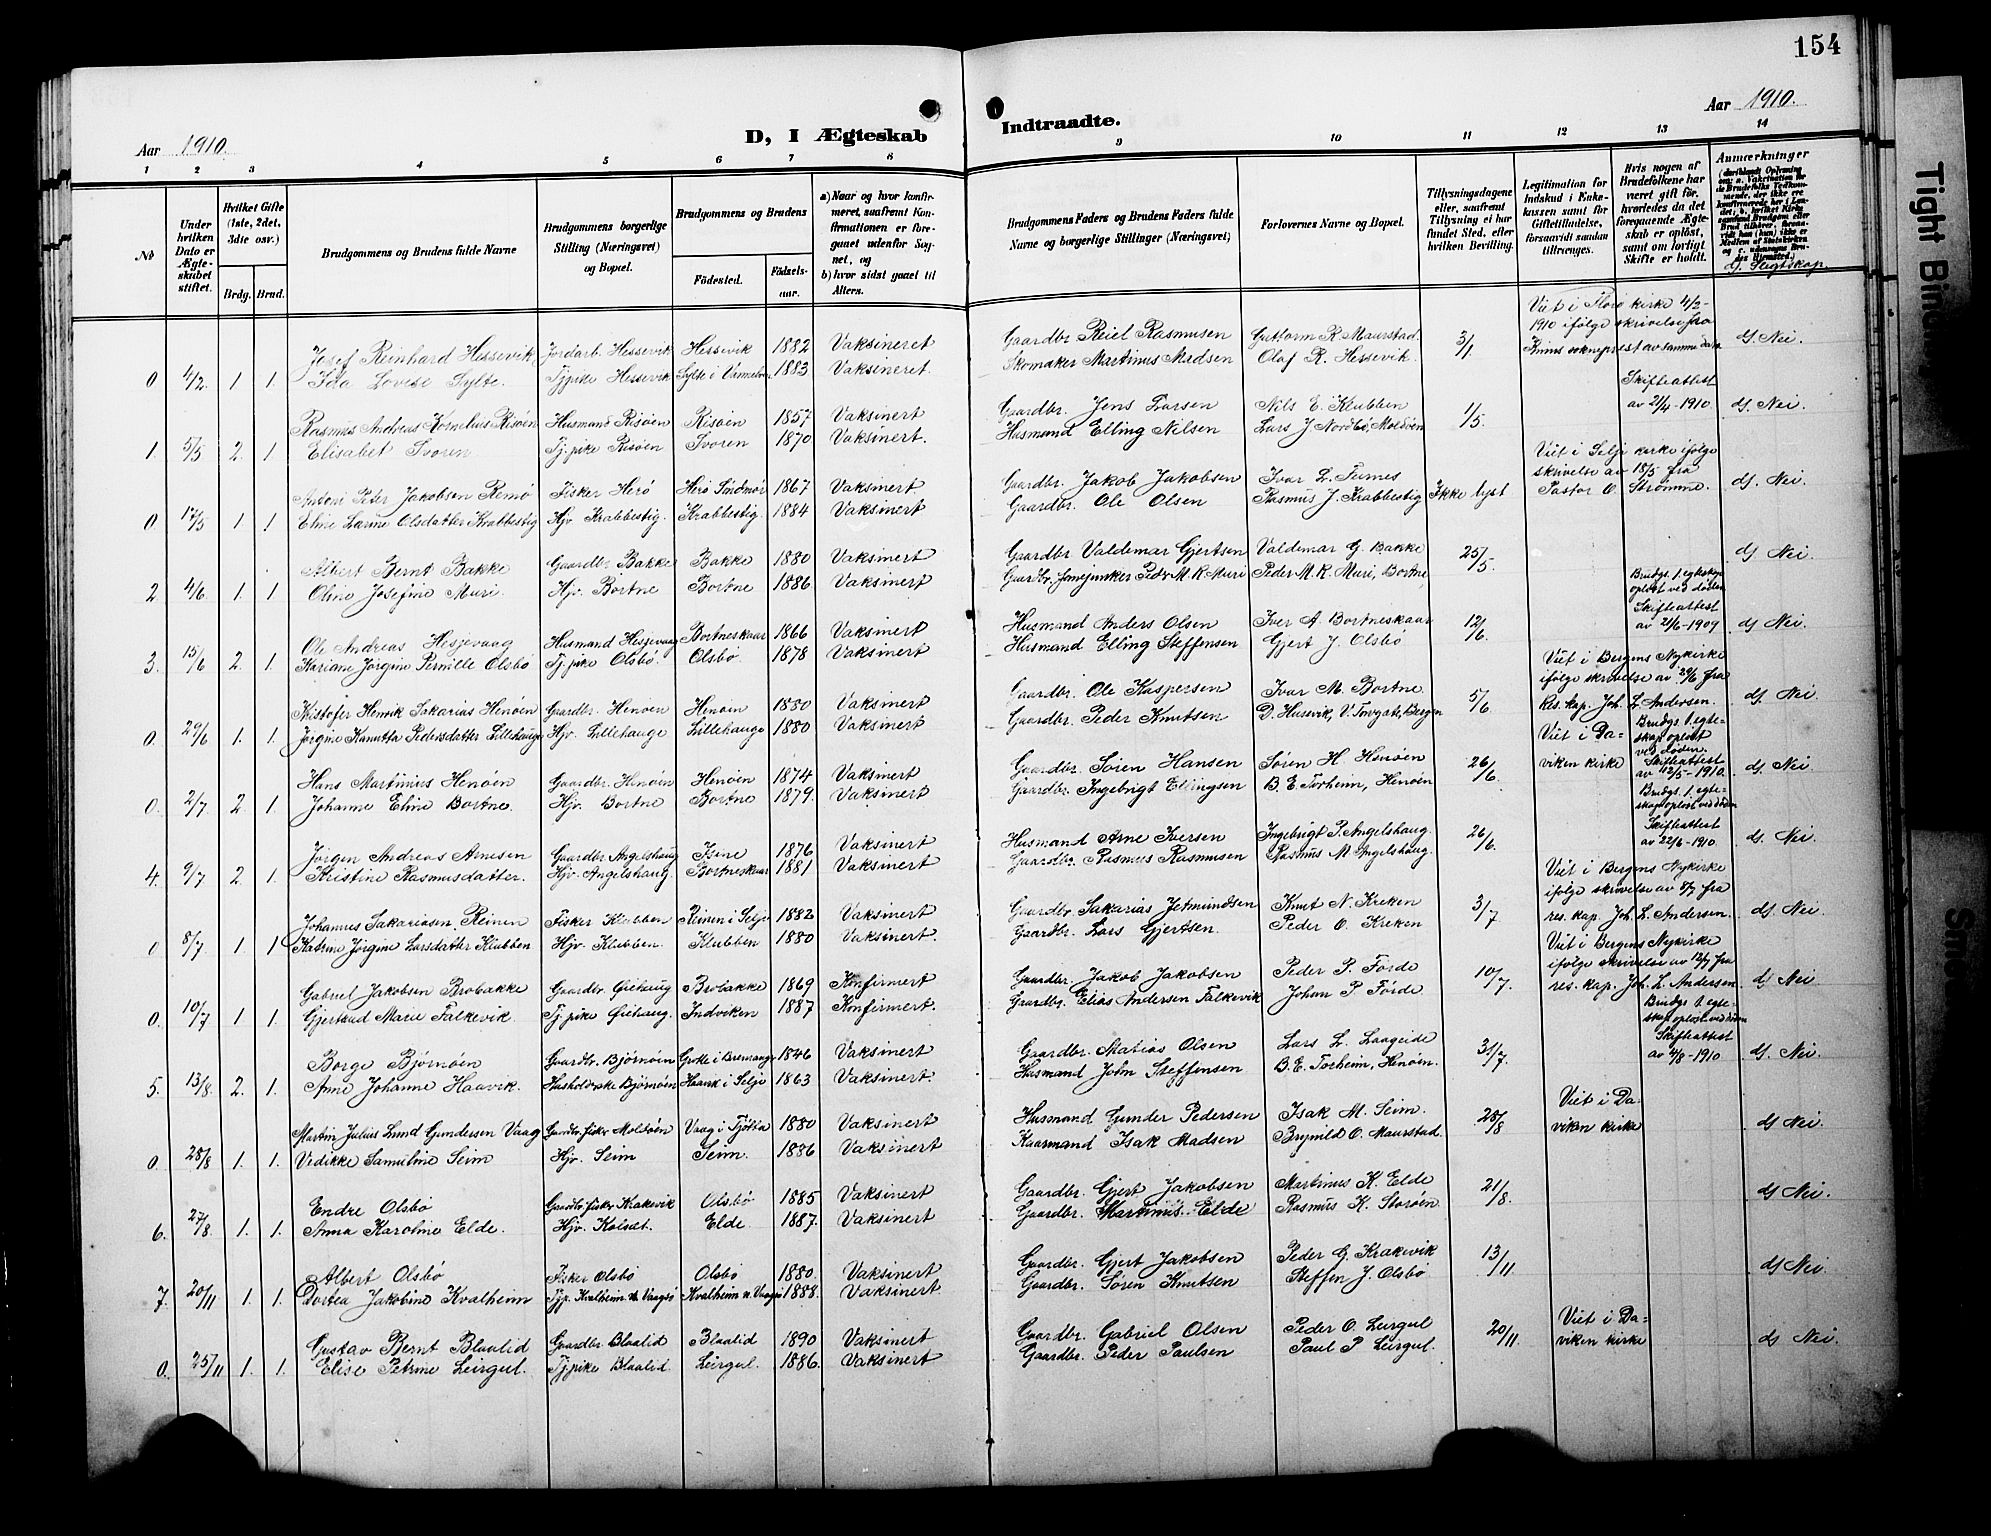 154
Aar 1910.
D, I Ægteskab
Indtraadte.
Aar 1910.
1 2 3 4 5 6 7 8 9 10 11 12 13 14
No
Under hvilken Dato er Ægteskabet stiftet.
Hvilket Gifte (1ste, 2det, 3dte osv.)
Brdg. Brud.
Brudgommens og Brudens fulde Navne
Brudgommens borgerlige Stilling (Næringsvei) og Bopæl.
Brudgommens og Brudens
Födested.
Födselsaar.
a) Naar og hvor konfirmeret, saafremt Konfirmationen er foregaaet udenfor Sognet, og
b) hvor sidst gaaet til Alters.
Brudgommens Faders og Brudens Faders fulde Navne og borgerlige Stillinger (Næringsvei)
Forlovernes Navne og Bopæl.
Tillysningsdagene eller, saafremt Tillysning ei har fundet Sted, efter hvilken Bevilling.
Legitimation for Indskud i Enkekassen samt for Giftetilladelse, forsaavidt saadan tiltrænges.
Hvis nogen af Brudefolkene har været gift för, hvorledes da det foregaaende Ægteskab er oplöst, samt om lovligt Skifte er holdt.
Anmærkninger
d. Slegtskap.
Josef Reinhard Hessevik Jordarb. Hessevik Hessevik 1882 Vaksineret Gaardbr. Reiel Rasmusen Guttorm R. Maurstad 3/1 Viet i Florø kirke 4/2-1910 ifølge skrivelse fra Kinns sokneprest av samme dato d) Nei.
0 4/2. 1. 1. Ida Lovise Sylte. Tj.pike Hessevik Sylte i Vannelven 1883 Vaksineret. Skomaker Martinus Madsen Olaf R. Hessevik.
Rasmus Andreas Kornelius Risøen Husmand Risøen Risøen 1857 Vaksinert Gaardbr. Jens Larsen Nils E. Klubben 1/5. Skifteattest av 21/4-1910 d) Nei.
1. 5/5 2. 1 Elisabet Svoren Tj.pike Risøen Svoren 1870 Vaksinert. Husmand Elling Nilsen Lars J. Nordbø, Moldøen
Antoni Peter Jakobsen Remø Fisker Herø Herø Søndmør 1867 Vaksinert Gaardbr. Jakob Jakobsen Ivar L. Furnes Ikke lyst Viet i Selje kirke ifølge skrivelse av 18/5 fra Pastor O. Strømme. d) Nei.
0 17/5 1. 1 Eline Larine Olsdatter Krabbestig Hjv. Krabbestig. Krabbestig 1884 Vaksinert Gaardbr. Ole Olsen Rasmus J. Krabbestig
Albert Bernt Bakke Gaardbr Bakke Bakke 1880 Vaksinert Gaardbr. Valdemar Gjertsen Valdemar G. Bakke 25/5. d) Nei
2 4/6 1. 1 Oline Josefine Muri. Hjv. Bortne Bortne 1886 Vaksinert Gaardbr. Peder M. R. Muri Peder M. R. Muri, Bortne
Ole Andreas Hesjevaag Husmand Hesjevaag Bortneskaar 1866 Vaksinert Husmand Anders Olsen Iver A. Bortneskaar 12/6. Brudgs. 1. egteskap opløst ved døden Skifteattest av 21/6-1909 d) Nei
3. 15/6 2. 1. Mariane Jørgine Pernille Olsbø Tj. pike Olsbø. Olsbø 1878 Vaksinert Husmand Elling Steffensen Gjert J. Olsbø
Kristofer Henrik Sakarias Henøen Gaardbr. Henøen Henøen 1880 Vaksinert Gaardbr. Ole Kaspersen Ivar M. Bortne 5/6. Viet i Bergens Nykirke ifølge skrivelse av 29/6 fra Res. kap. Joh. L. Andersen. d) Nei
0. 29/6 1. 1. Jørgine Kanutta Pedersdatter Lillehauge Hjv. Lillehauge Lillehauge 1880 Vaksinert Gaardbr. Peder Knutsen D. Husevik, V. Torvgate, Bergen
Hans Martinius Henøen Gaardbr. Henøen Henøen 1874 Vaksinert Gaardbr. Søren Hansen Søren H. Henøen 26/6. Viet i Daviken kirke Brudgs. 1. egteskap opløst ved døden. Skifteattest av 12/5-1910. d) Nei
0. 2/7 2. 1. Johanne Eline Bortne. Hjv. Bortne Bortne 1879. Vaksinert Gaardbr. Ingebrigt Ellingsen B. E. Torheim, Henøen
Jørgen Andreas Arnesen Gaardbr. Angelshaug Isene 1876 Vaksinert Husmand Arne Iversen Ingebrigt P. Angelshaug. 26/6. Brudgs. 1. egteskap opløst ved døden Skifteattest av 22/6-1910. d) Nei.
4. 9/7 2. 1. Kristine Rasmusdatter. Hjv. Angelshaug. Bortneskaar 1881 Vaksinert Gaardbr. Rasmus Rasmusen Rasmus M. Angelshaug.
Johannes Sakariasen Reinen Fisker Klubben Reinen i Selje 1882 Vaksinert Gaardbr. Sakarias Jetmundsen Knut N. Kreken 3/7 Viet i Bergens Nykirke ifølge skrivelse av 8/7 fra res. kap. Joh. L. Andersen. d) Nei
0 8/7 1. 1 Katrine Jørgine Larsdatter Klubben Hjv. Klubben. Klubben 1880 Vaksinert. Gaardbr. Lars Gjertsen. Peder O. Kreken
Gabriel Jakobsen Brobakke Gaardbr. Giehaug Brobakke 1869 Konfirmert Gaardbr. Jakob Jakobsen Peder P. Førde 10/7 Viet i Bergens Nykirke ifølge skrivelse av 12/7 fra res. kap. Joh. L. Andersen d) Nei
0. 10/7 1. 1 Gjertrud Marie Falkevik. Tj. pike Giehaug. Indviken 1887 Konfirmert. Gaardbr. Elias Andersen Falkevik Johan P. Førde
Børge Bjørnøen Gaardbr. Bjørnøen Grotle i Bremanger 1846 Vaksinert Gaardbr. Matias Olsen Lars L. Laageide 31/7. Brudgs. 1. egteskap opløst ved døden Skifteattest av 4/8-1910 d). Nei
5. 13/8. 2. 1. Anne Johanne Haavik. Husholderske Bjørnøen Haavik i Selje 1863 Vaksinert. Husmand John Steffensen B. E. Torheim, Henøen.
Martin Julius Lund Gundersen Vaag Gaardbr. fisker Moldøen Vaag i Tjötta 1880 Vaksinert Husmand Gunder Pedersen Isak M. Seim. 28/8 Viet i Daviken kirke d) Nei
0 28/8 1. 1. Vedikke Samuline Seim Hjv. Seim Seim. 1886 Vaksinert Kaarmand Isak Madsen Brynild O. Maurstad.
Endre Olsbø Gaardbr. fisker Krakevik Olsbø 1885 Vaksinert Gaardbr. Gjert Jakobsen Martinus K. Elde 21/8. d) Nei.
6. 27/8. 1. 1. Anna Karoline Elde. Hjv. Kolset. Elde 1887. Vaksinert Gaardbr. Martinus Elde Rasmus K. Storøen.
Albert Olsbø Fisker Olsbø Olsbø 1880. Vaksinert Gaardbr. Gjert Jakobsen Peder G. Krakevik 13/11 d) Nei
7. 20/11 1. 1. Dortea Jakobine Kvalheim Tjp. Kvalheim n. Vaagsø Kvalheim n. Vaagsø 1888. Vaksinert Gaardbr. Søren Knutsen Steffen J. Olsbø
Gustav Bernt Blaalid Gaardbr. Blaalid Blaalid 1890 Vaksinert Gaardbr. Gabriel Olsen Peder O. Leirgul 20/11. Viet i Daviken kirke d) Nei
0. 25/11 1. 1. Elise Petrine Leirgul. Tj.pike Blaalid Leirgul. 1886. Vaksinert Gaardbr. Peder Paulsen Paul P. Leirgul.
Tight Bin